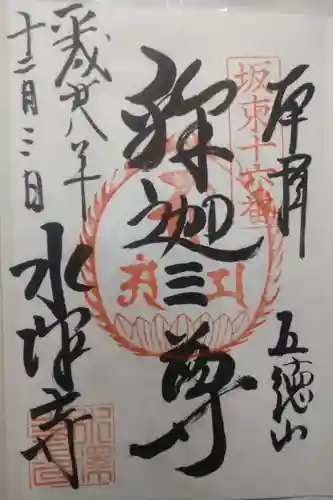 奉拝
五徳山
坂東十六番
釋迦三尊
平成廿八年
十二月三日
水澤寺